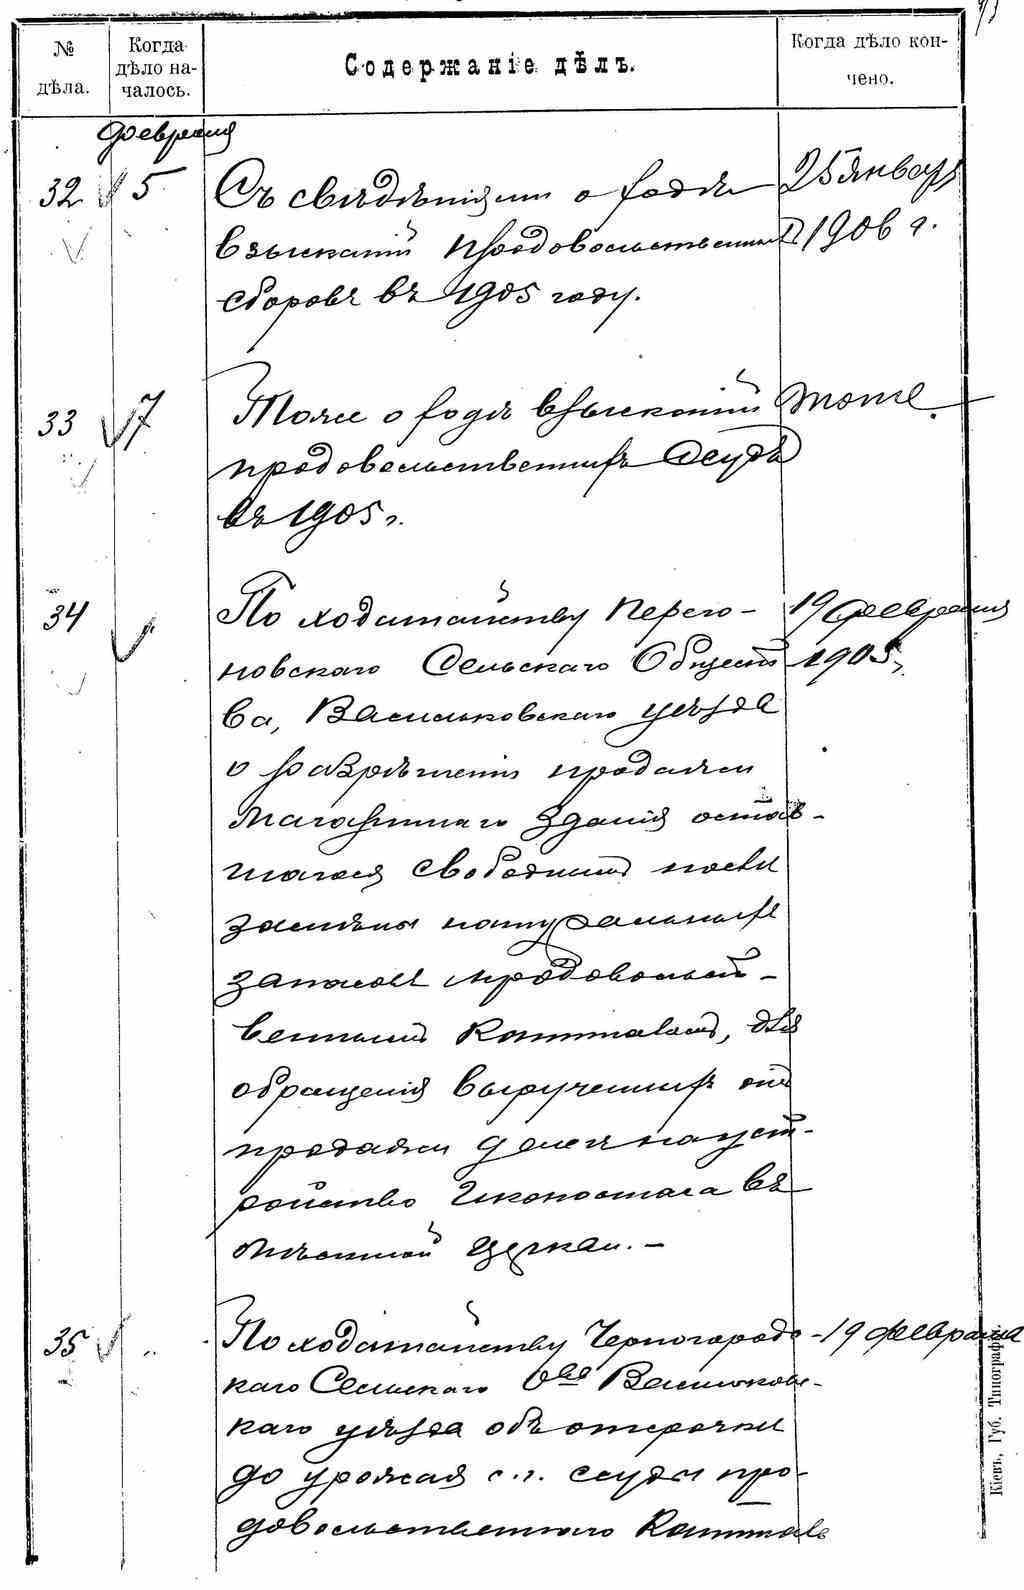 № дѣла.
Когда дѣло на-
чалось.
Содержаніе дѣлъ.
Когда дѣло кон-
чено.
февраля
32 5 Съ свѣдѣніями о ходѣ 25 январ
взысканій продовольственныхъ 1906 г.
сборовъ въ 1905 году.
33 7 Тоже о ходѣ взысканій тоже
продовольственныхъ ссудъ
въ 1905 г.
34 По ходатайству Перего- 19 февраля
новскаго Сельскаго Общест 1905 г.
ва, Васильковскаго уѣзда
о разрѣшеніи продажи
магазиннаго зданія остав-
шагося свободнымъ послѣ
замѣны натуральныхъ
запасовъ продовольст-
веннымъ капиталомъ, для
обращенія вырученныхъ отъ
продажи денегъ на уст-
ройство иконостаса въ
мѣстной церкви. -
35 " По ходатайству Черногородс- 19 февраля
каго Сельскаго О-ва Васильковс-
каго уѣзда объ отсрочкѣ
до урожая с.г. ссуды про-
довольственнаго капитала
Кіевъ, Губ. Типографія